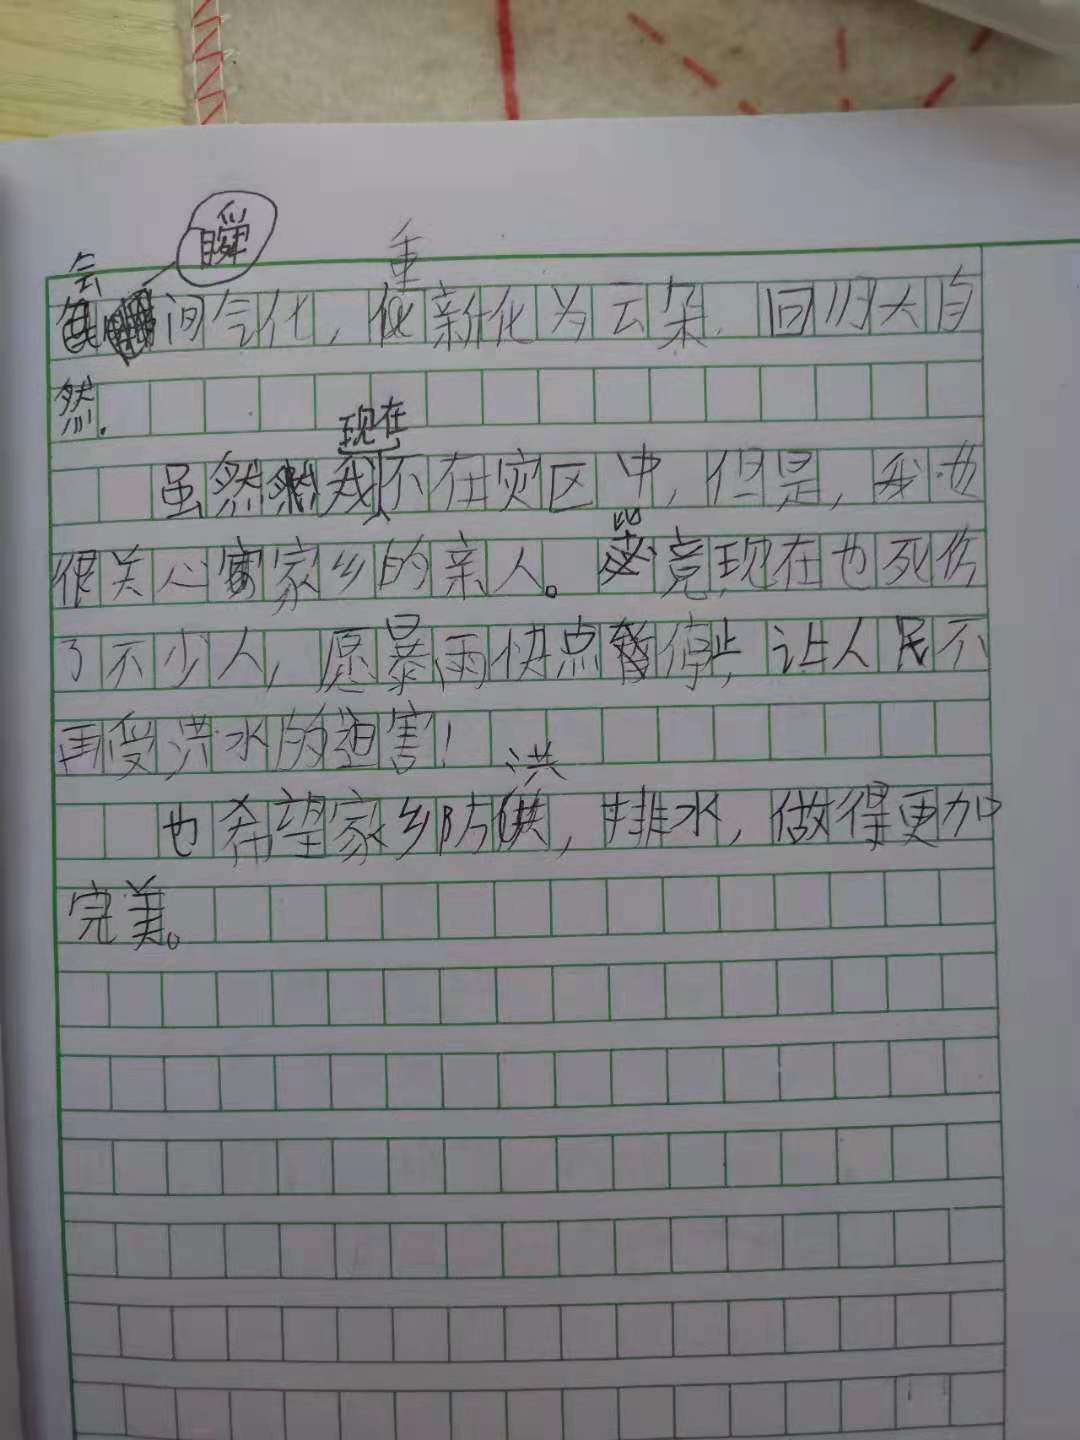 会瞬间气化，重新化为云朵，回归大自
然.
虽然我现在不在灾区中，但是，我也
很关心家乡的亲人。毕竟现在也死伤
了不少人，愿暴雨快点暂停，让人民不
再受洪水的迫害！
也希望家乡防洪，排水，做得更加
完美。